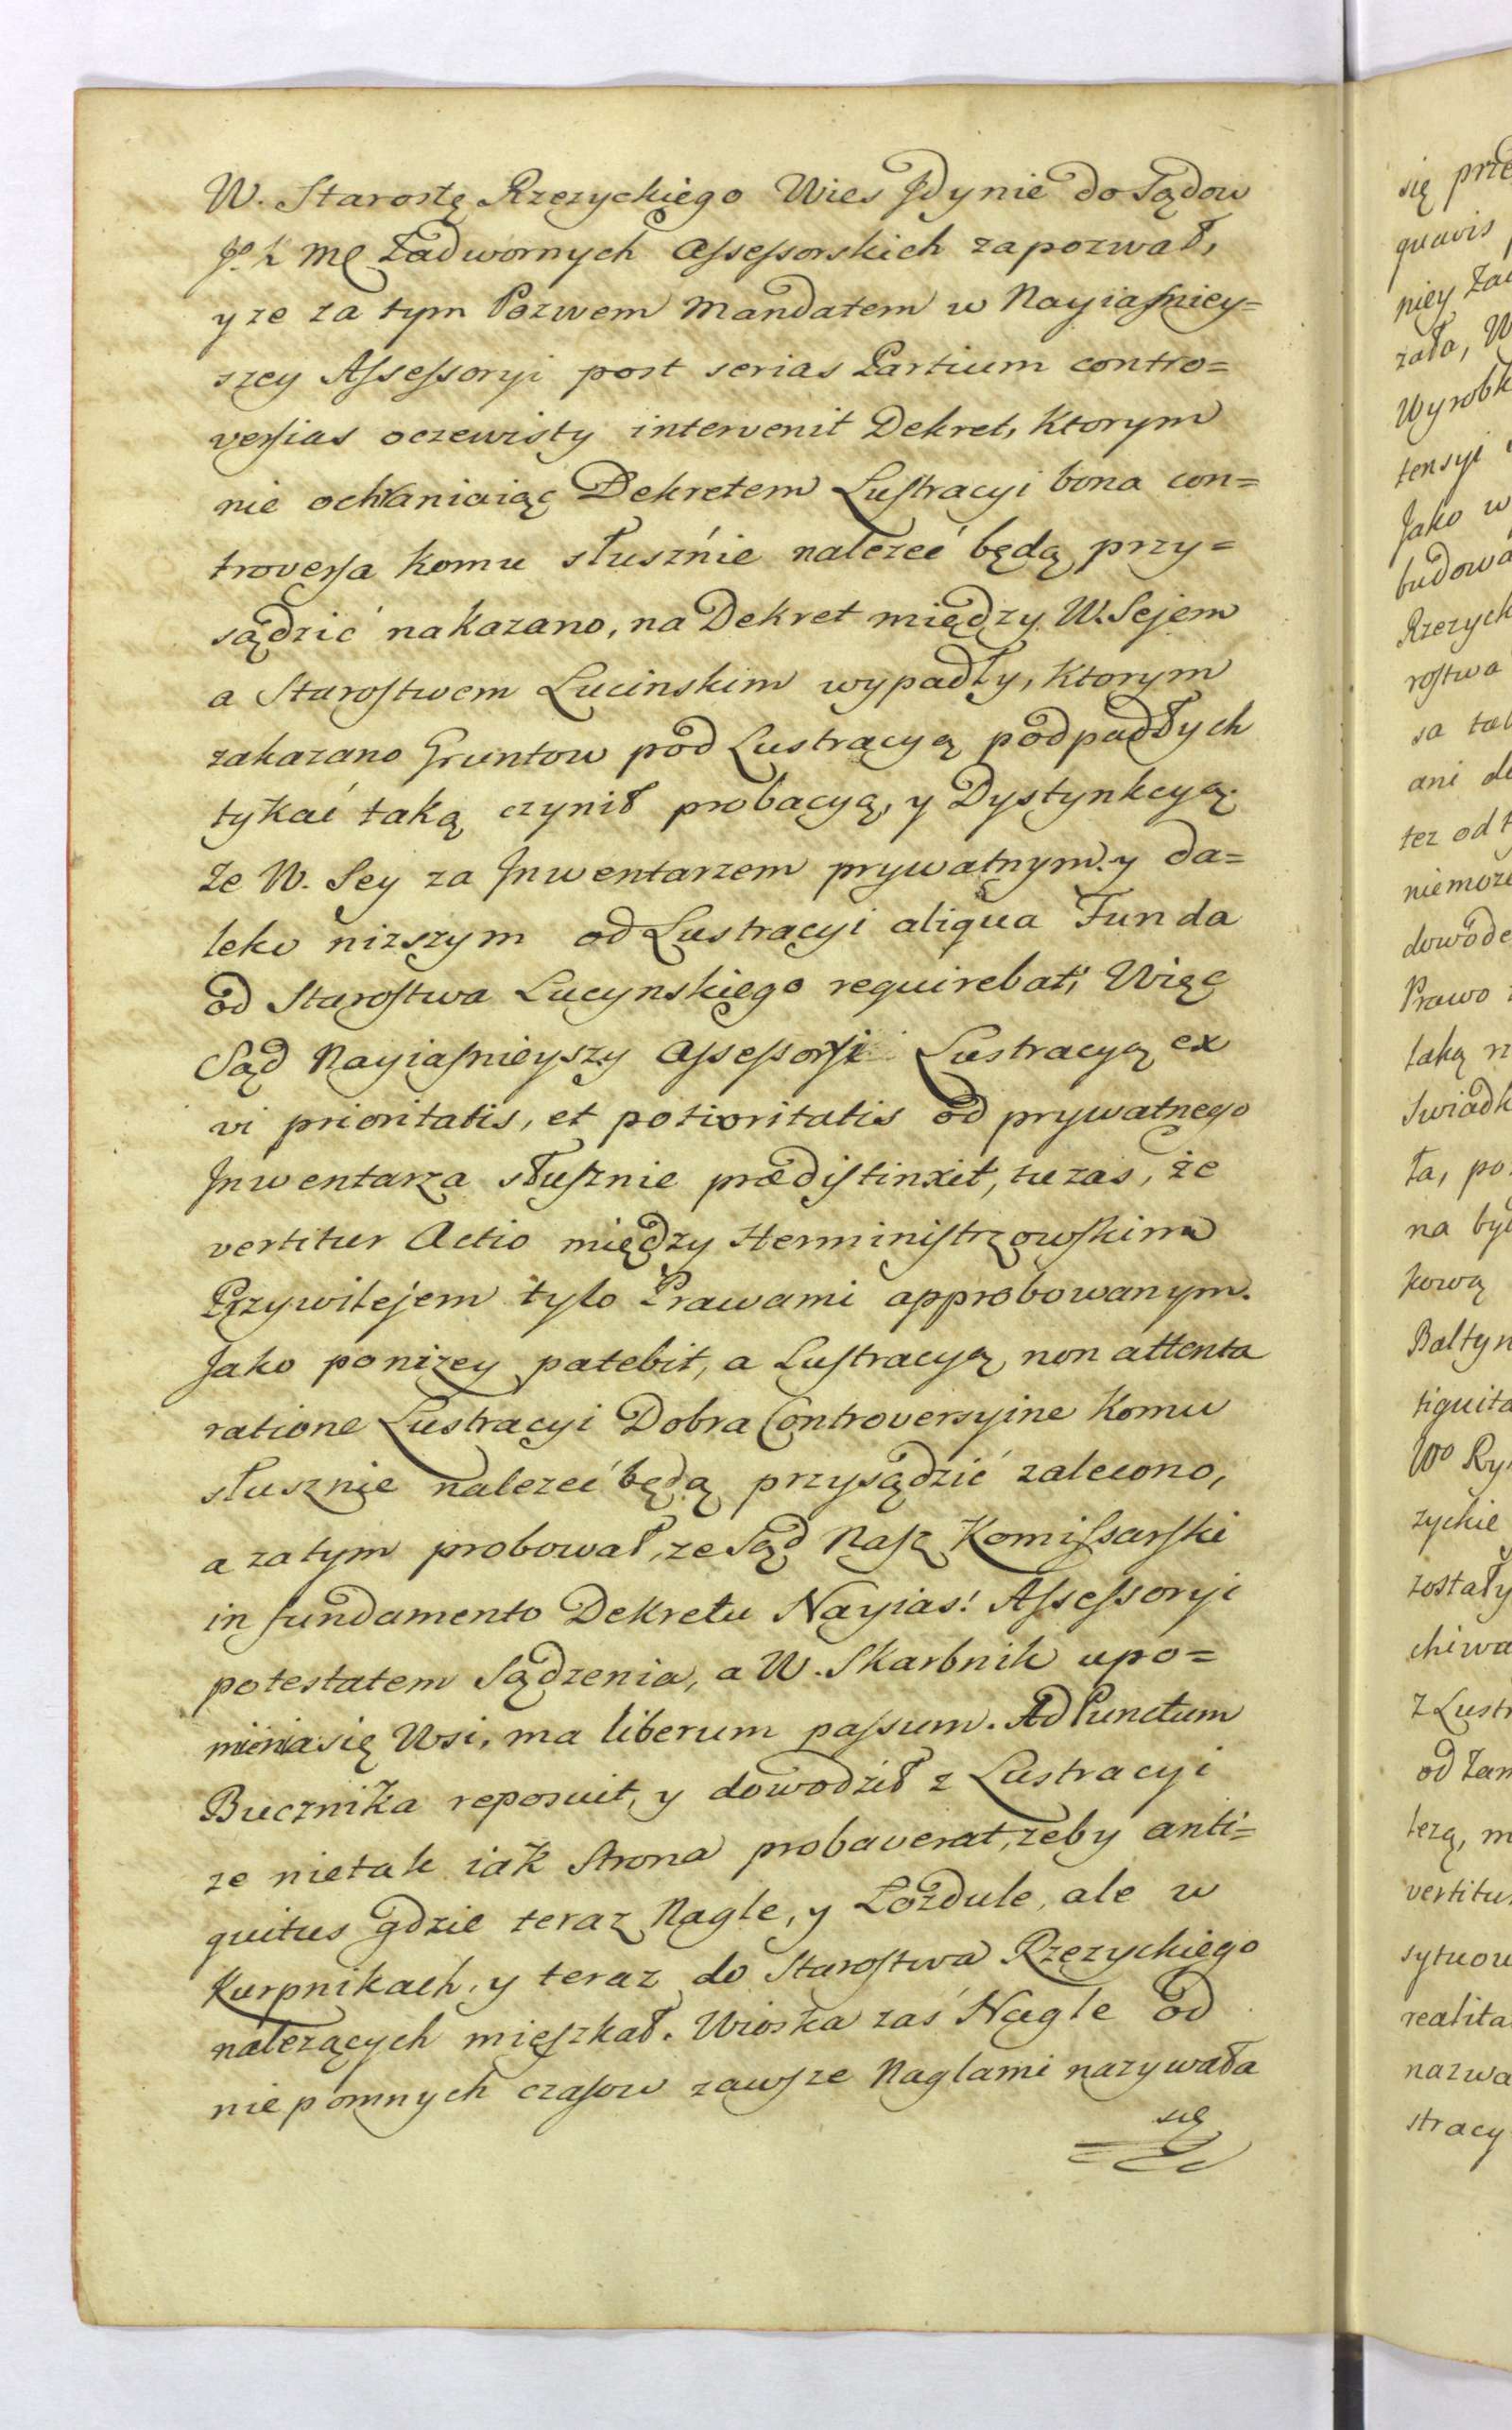 W. Starostę Rzezyckiego Wies Jdynie do Sądow
Jo. K Mę Zadwornych Assessorskich zapozwał,
y ze za tym Pozwem Mandatem w Nayiasniey=
szey Assessoryi post serias Partium contro=
versias oczewisty intervenit Dekret, Ktorym
nie ochraniaiąc Dekretem Lustracyi bona con=
troversa komu słusznie nalezeć będą przy=
sądzić nakazano, na Dekret między W. Sejem
a Starostwem Lucinskim wypadły, Ktorym
zakazano Gruntow pod Lustrącyą podpadłych
tykać taką czynił probacyą, y Dystynkcyą
Ze W. Sey za Jnwentarzem prywatnym y da=
leko nizszym od Lustracyi aliqua Funda
od Starostwa Lucynskiego requirebat; Więc
Sąd Nayiasnieyszy Assessorsi Lustracyą ex
vi prioritatis, et potioritatis od prywatnego
Jnwentarza słusznie prædistinxit, tu zas, że
vertitur Actio między Herministrzowskim
Przywilejem tylo Prawami approbowanym.
Jako ponizey patebit, a Lustracyą non attenta
ratione Lustracyi Dobra Controversyine Komu
słusznie nalezeć będą przysądzić zalecono,
a zatym probował, ze Sąd Nasz Komissarski
in fundamento Dekretu Nayias! Assessoryi
potestatem Sądzenia, a W. Skarbnik upo=
minia się Wsi, ma liberum passum. Ad Punctum
Bucznika reposuit, y dowodził z Lustracyi
ze nietak iak Strona probaverat, zeby anti=
quitus gdzie teraz Nagle, y Łozdule, ale w
Kurpnikach, y teraz do Starostwa Rzezyckiego
nalezących mięszkał. Wioska zaś Nagle od
niepomnych czasow zawsze Naglami nazywała
się
się prze
quavis
niey Za
zała, W
Wyrobk
tensyi
Jako w
budowa
Rzezyck
rostwa
sa tal
ani de
tez od t
niemoze
dowode
Prawo
taką rz
Swiadk
ła, po
na był
kową
Baltyn
tiquita
Wo Ry
zyckie
zostały
chiwa
z Lustr
od Zam
lezą, m
vertitu
sytuow
realita
nazwa
stracy